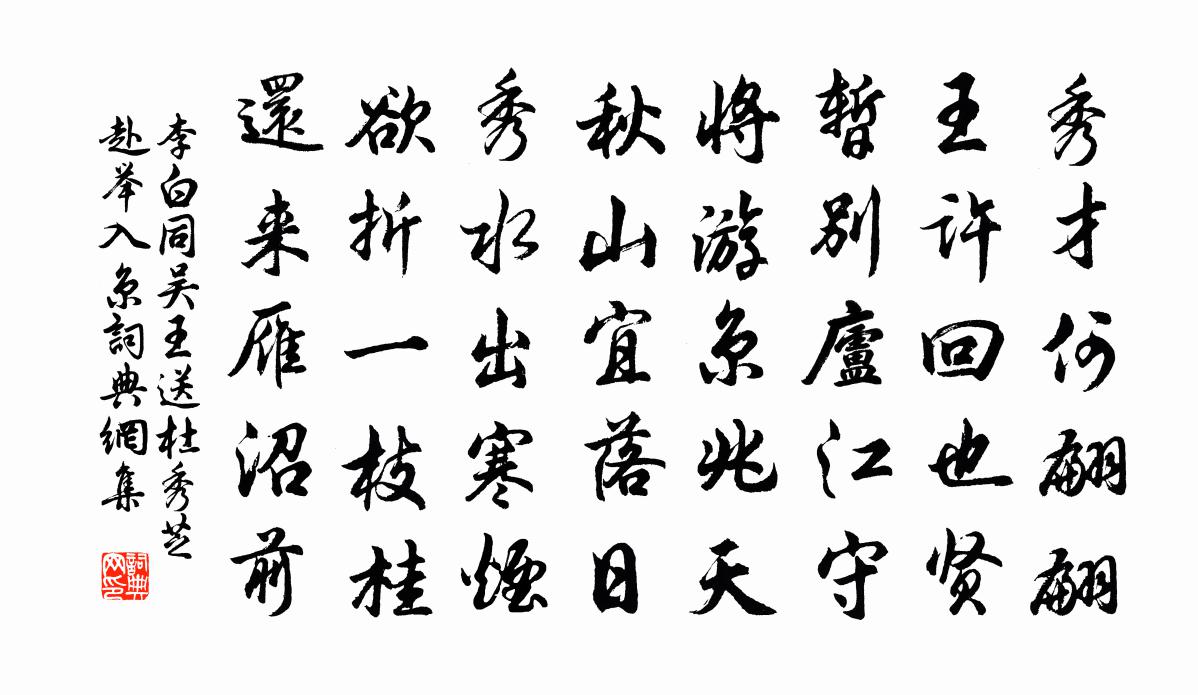 秀才何翩翩
王許回也贤
暫別廬江守
將游京兆天
秋山宜落日
秀水出寒煙
欲折一枝桂
還来雁沼前
李白同吴王送杜秀芝
赴举入京詞典網集
詞典网印